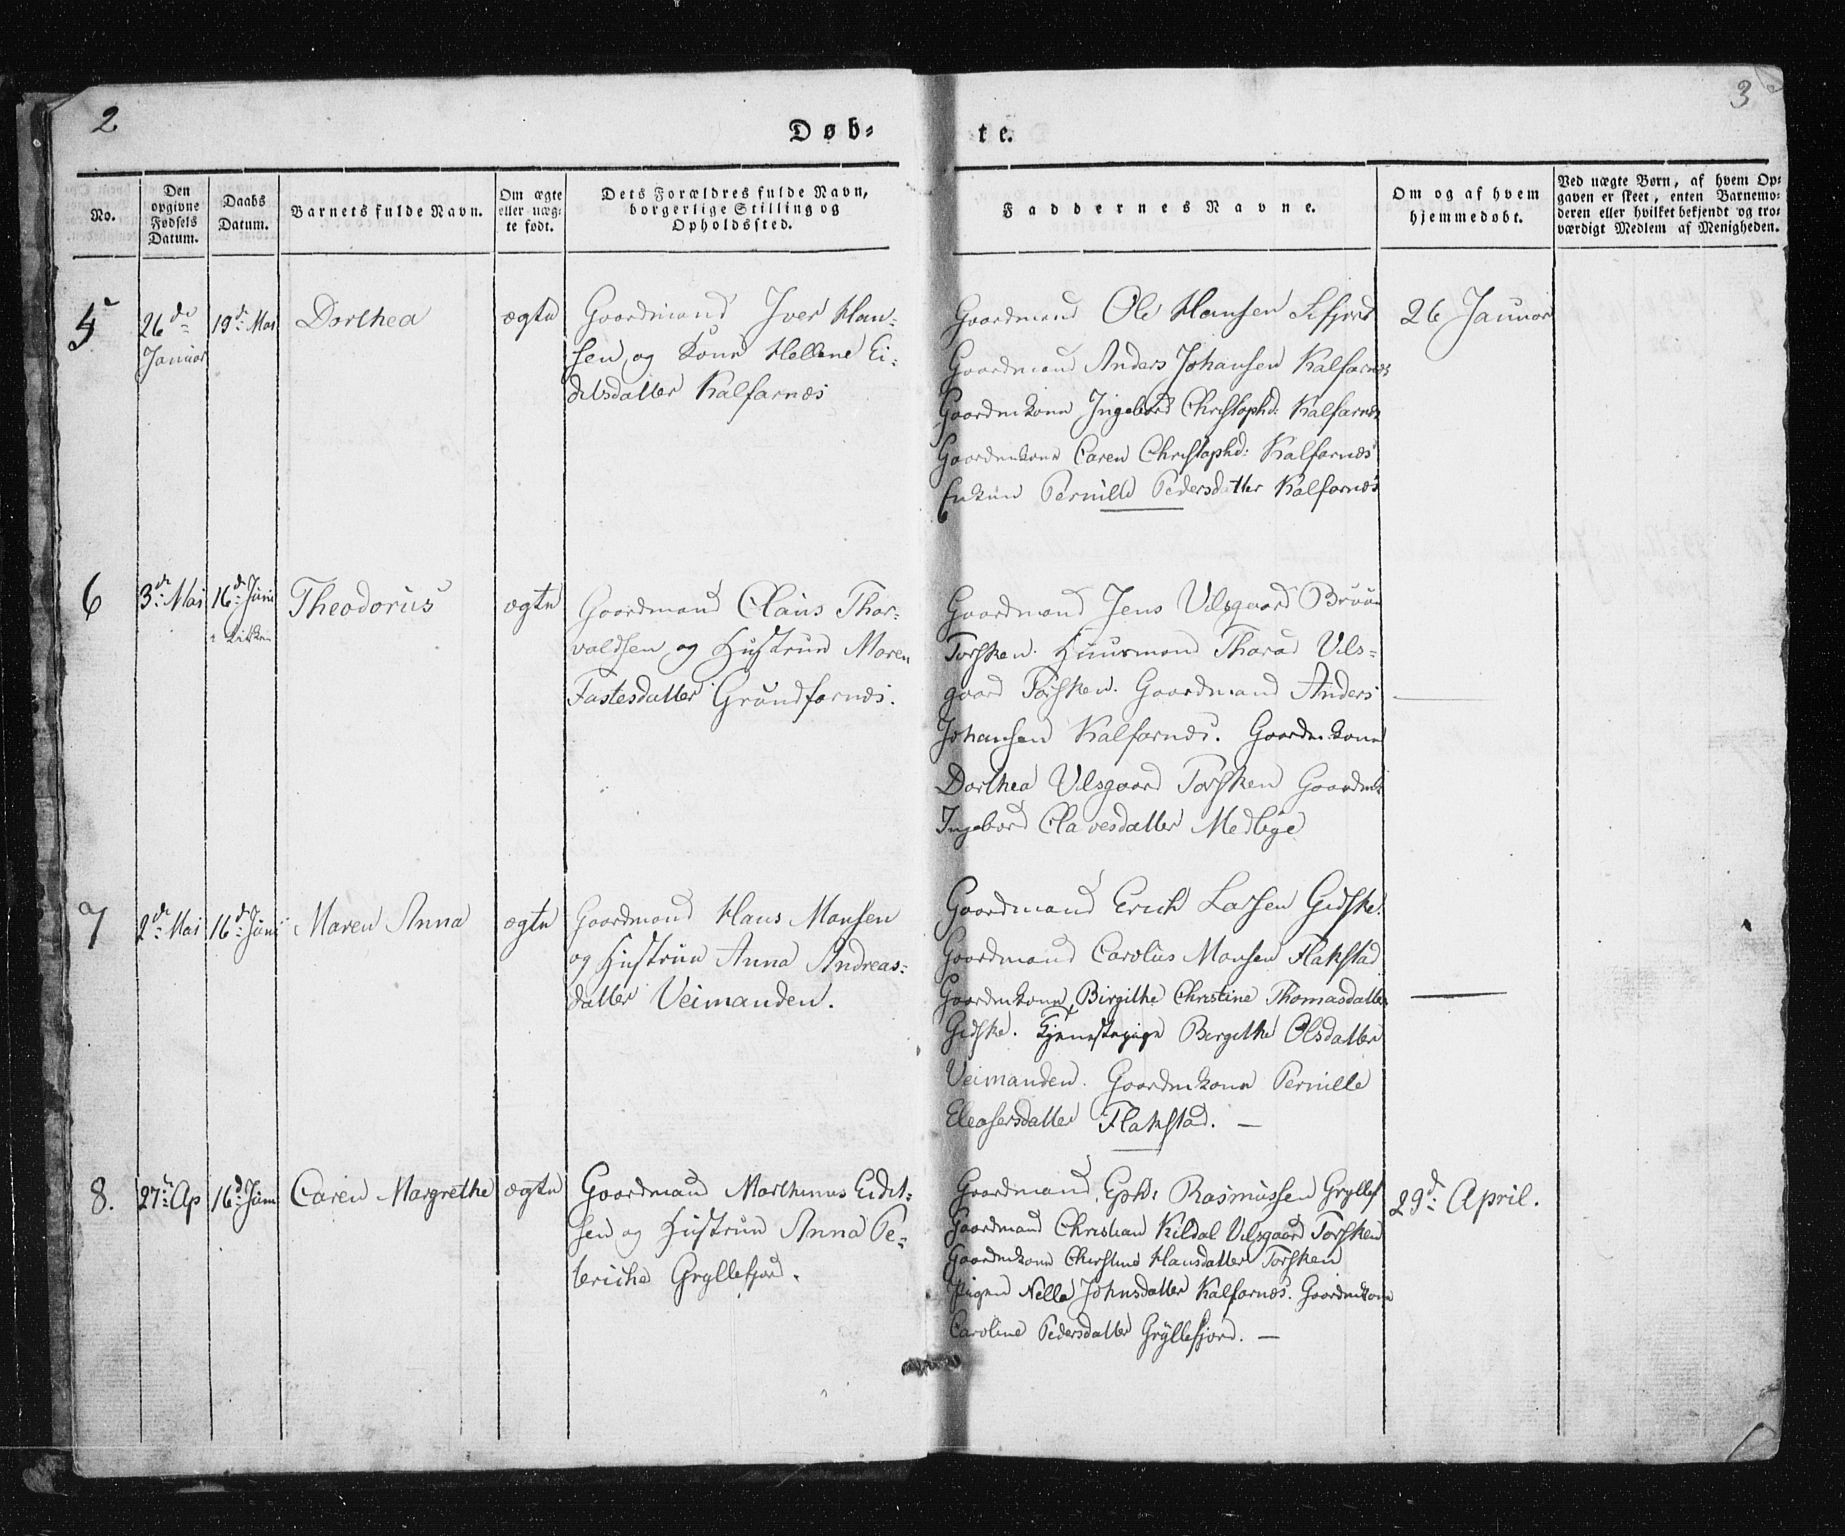 2
3
Døb-
te.
No.
Den
opgivne
Fødsels
Datum.
Daabs
Datum.
Barnets fulde Navn.
Om ægte
eller uæg-
te født.
Dets Forældres fulde Navn,
borgerlige Stilling og
Opholdssted.
Faddernes Navne.
Om og af hvem
hjemmedøbt.
Ved uægte Børn, af hvem Op-
gaven er skeet, enten Barnemo-
deren eller hvilket bekjendt og tro-
værdigt Medlem af Menigheden.
5
26de
Januar
19d Mai
Dorthea
ægte
Gaardmand Iver Han-
sen og Kone Hellene Ei-
ditsdatter Kalfarnæs
Gaardmand Ole Hansen Sifjord
Gaardmand Anders Johansen Kalfarnæs
Gaardmkone Ingebord Christophd: Kalfarnæs
Gaardmkone Caren Christophd: Kalfarnæs
Enken Pernille Pedersdatter Kalfarnæs
26 Januar
6
3de Mai
16d Juni
Theodorius
ægte
Gaardmand Claus Thor-
valdsen og Hustrue Maren
Fastesdatter Grundfarnæs.
Gaardmand Jens Ulsgaard Bruun
Torsken. Huusmand Tharal Uls-
gaard Torsken. Gaardmand Anders
Johansen Kalfarnæs. Gaardmkone
Dorthea Ulsgaard Torsken Gaardmk
Ingebord Clavesdatter Medbye
7
2de Mai
16d Juni
Maren Anna
ægte
Gaardmand Hans Monsen
og Hustrue Anna Andreas-
datter Veimanden.
Gaardmand Erich Larsen Gidske.
Gaardmand Carolius Monsen Flakstad
Gaardmkone Birgithe Christine Thomasdatter
Gidske. Tjenestepige Birgithe Olsdatter
Veimanden. Gaardmkone Pernille
Eleasersdatter Flakstad. —
8.
27d Ap
16d Juni
Caren Margrethe
ægte
Gaardmand Marthinus Eidit-
sen og Hustrue Anna Pe-
tericha Gryllefjord.
Gaardmand Rasmussen Gryllef
Gaardmand Christian Kildal Ulsgaard Torsken
Gaardmkone Christine Hansdatter Torsken
Pigen Nella Johnsdatter Kalfarnæs. Gaardmkone
Caroline Pedersdatter Gryllefjord. —
29d April.